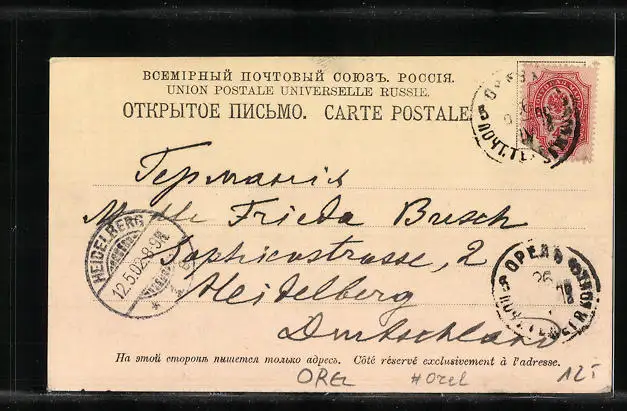 ВСЕМІРНЫЙ ПОЧТОВЫЙ СОЮЗЪ. РОССІЯ.
UNION POSTALE UNIVERSELLE RUSSIE.
ОТКРЫТОЕ ПИСЬМО. CARTE POSTALE
Германія
Mlle Frieda Busch
Sophienstrasse, 2
Heidelberg
Deutschland
HEIDELBERG
12.5.02.8-9N
ОРЕЛЪ
На этой сторонѣ пишется только адресъ. Côté réservé exclusivement à l'adresse.
OREL
#Orel